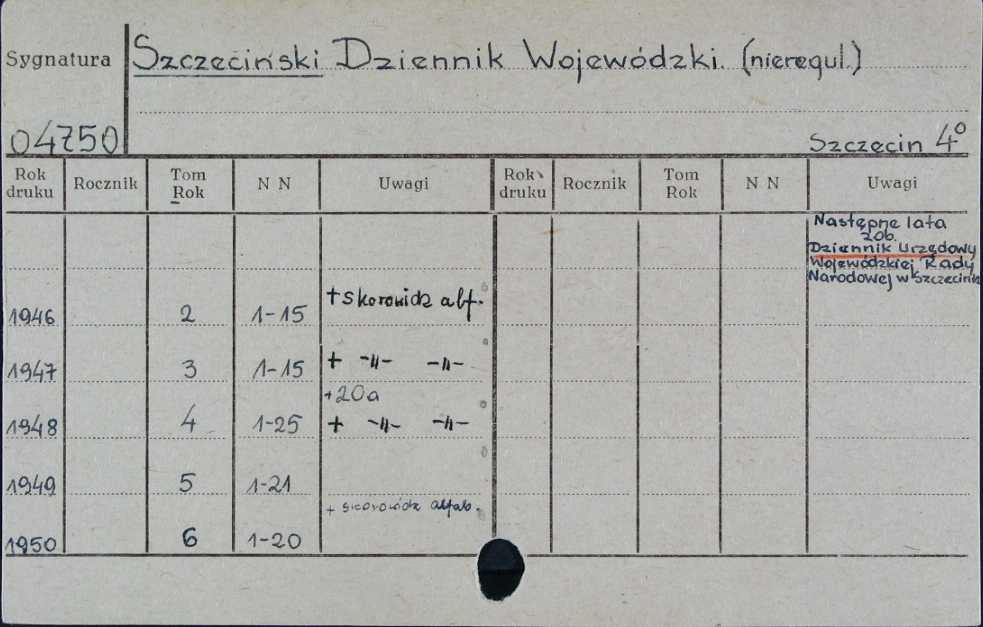 Sygnatura
Szczeciński Dziennik Wojewódzki. (nieregul.)
04750
Szczecin 4º
Rok druku Rocznik Tom Rok N N Uwagi Rok druku Rocznik Tom Rok N N Uwagi
Następne lata
zob.
Dziennik Urzędowy
Wojewódzkiej Rady
Narodowej w Szczecinie
1946 2 1-15 + skorowidz alf.
1947 3 1-15 + -〃- -〃-
+20a
1948 4 1-25 + -〃- -〃-
1949 5 1-21
+ skorowidz alfab.
1950 6 1-20